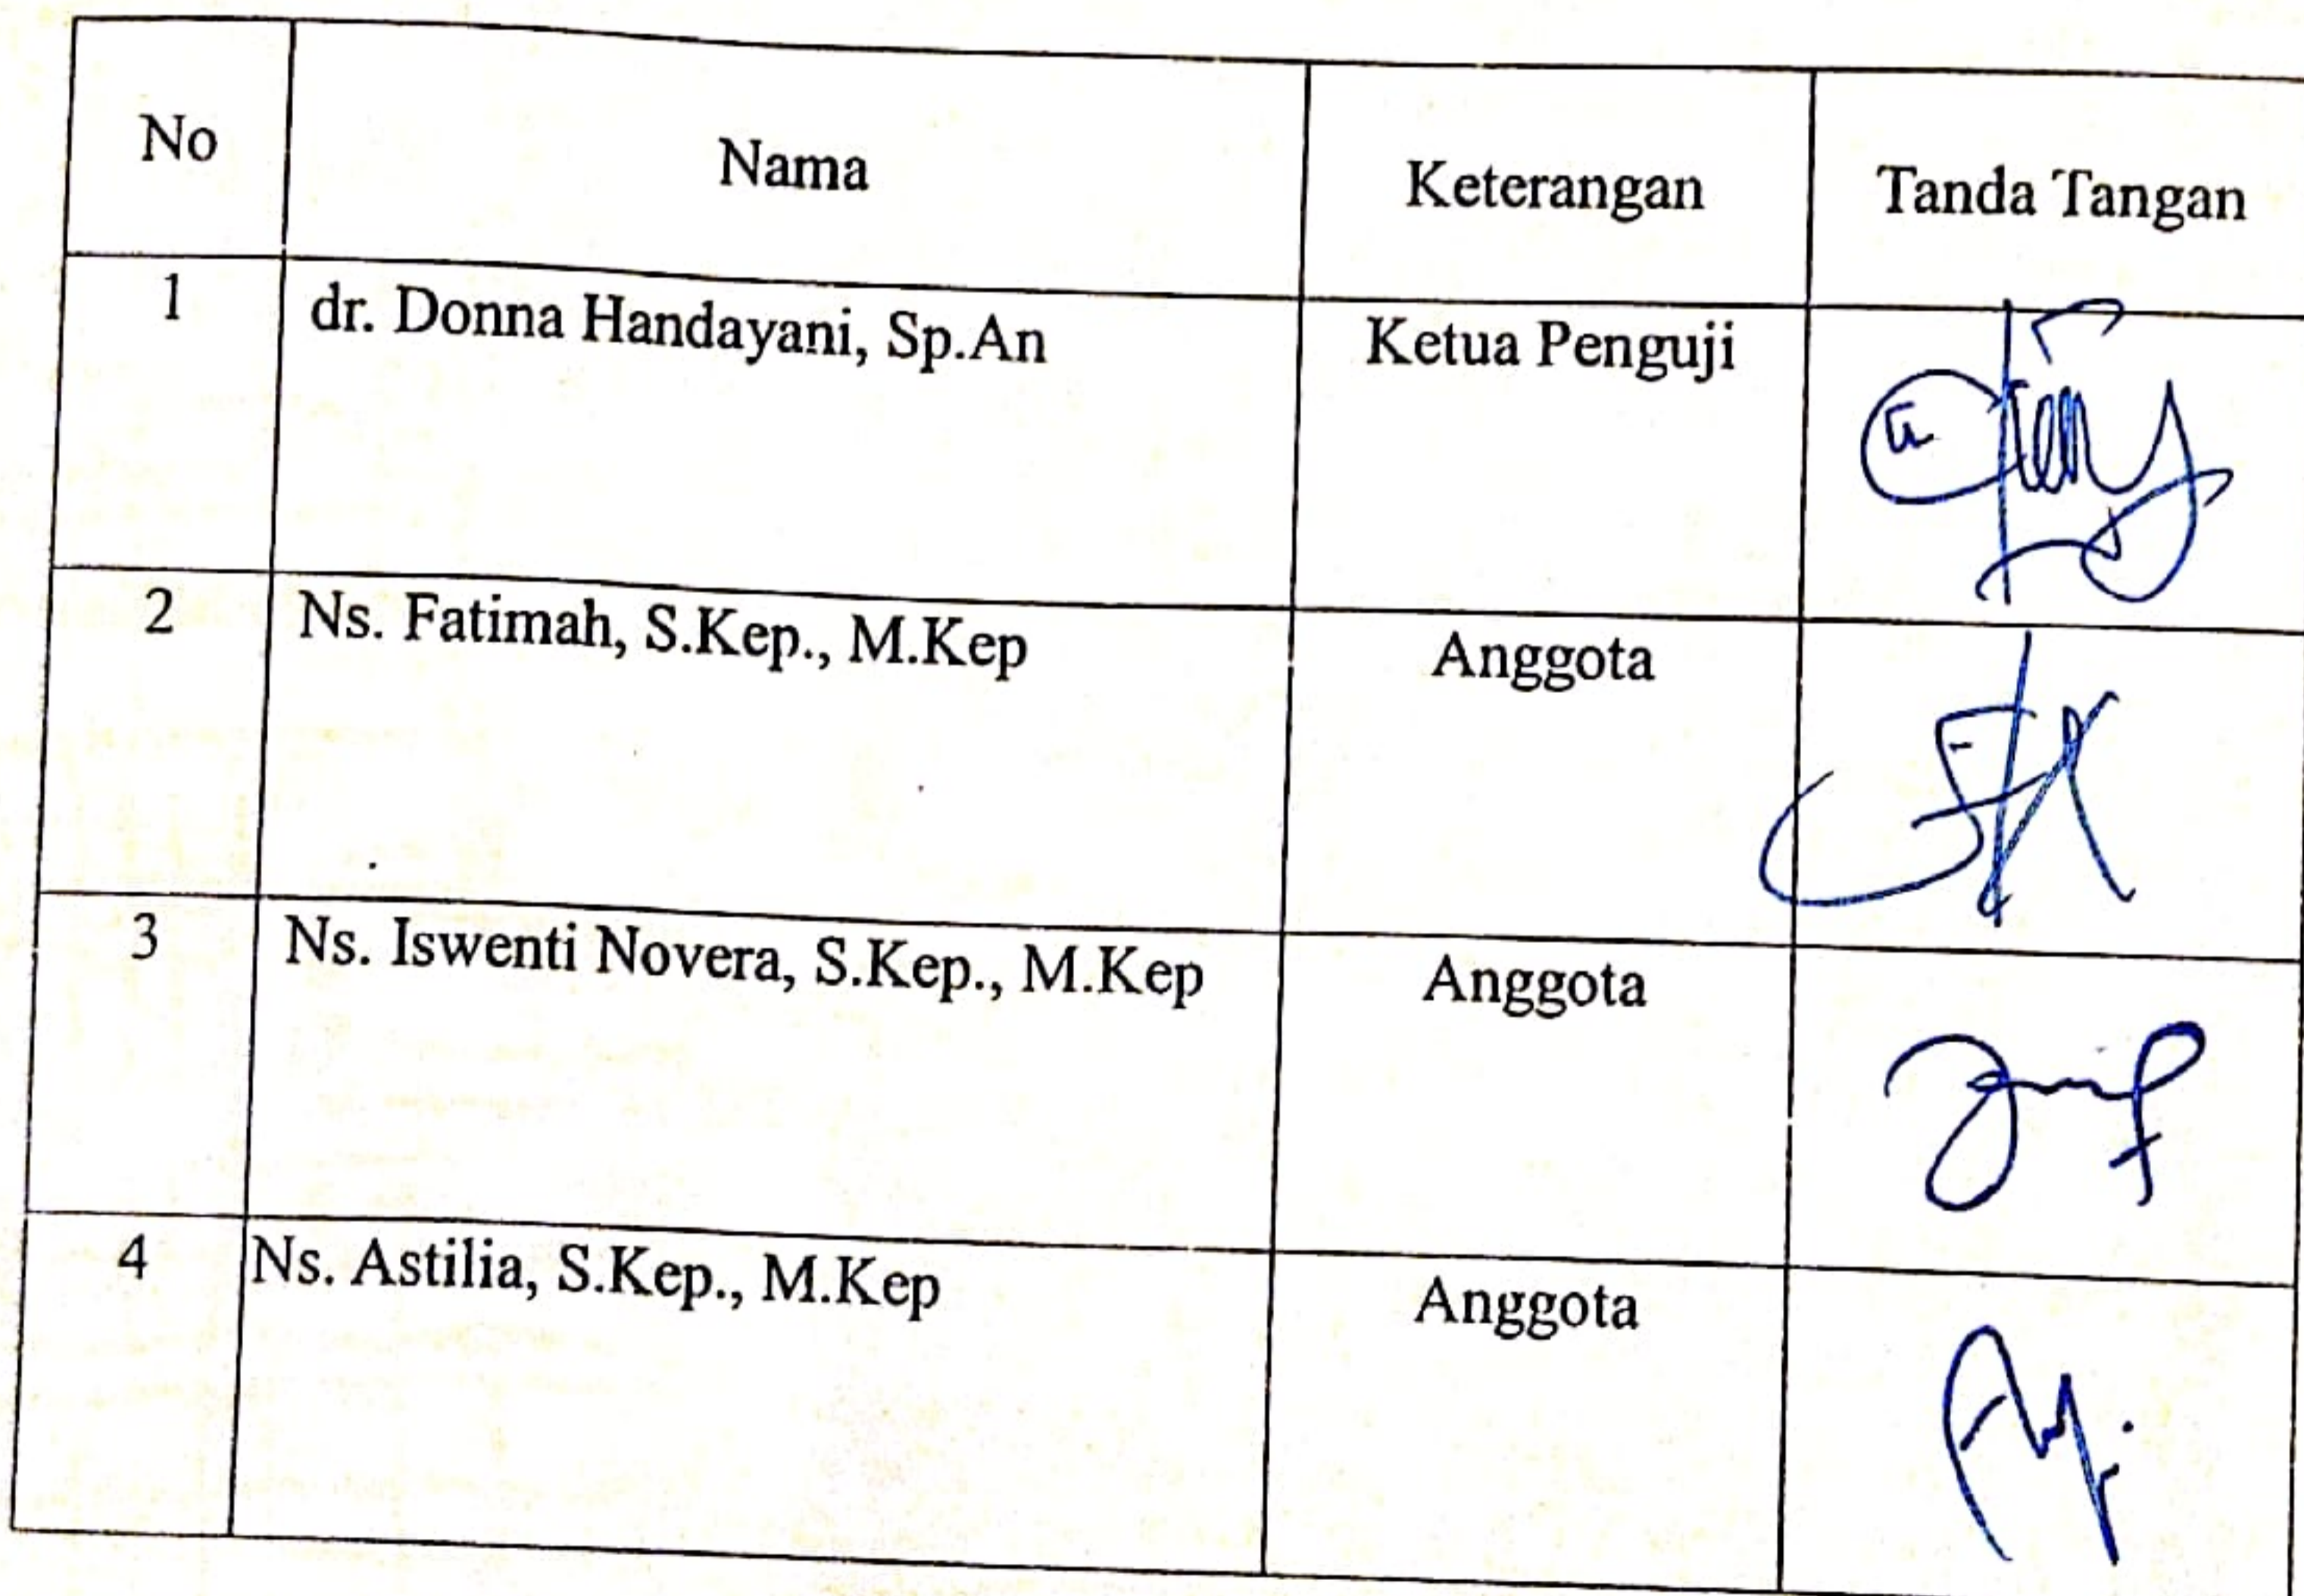 No Nama Keterangan Tanda Tangan
1 dr. Donna Handayani, Sp.An Ketua Penguji
2 Ns. Fatimah, S.Kep., M.Kep Anggota
3 Ns. Iswenti Novera, S.Kep., M.Kep Anggota
4 Ns. Astilia, S.Kep., M.Kep Anggota